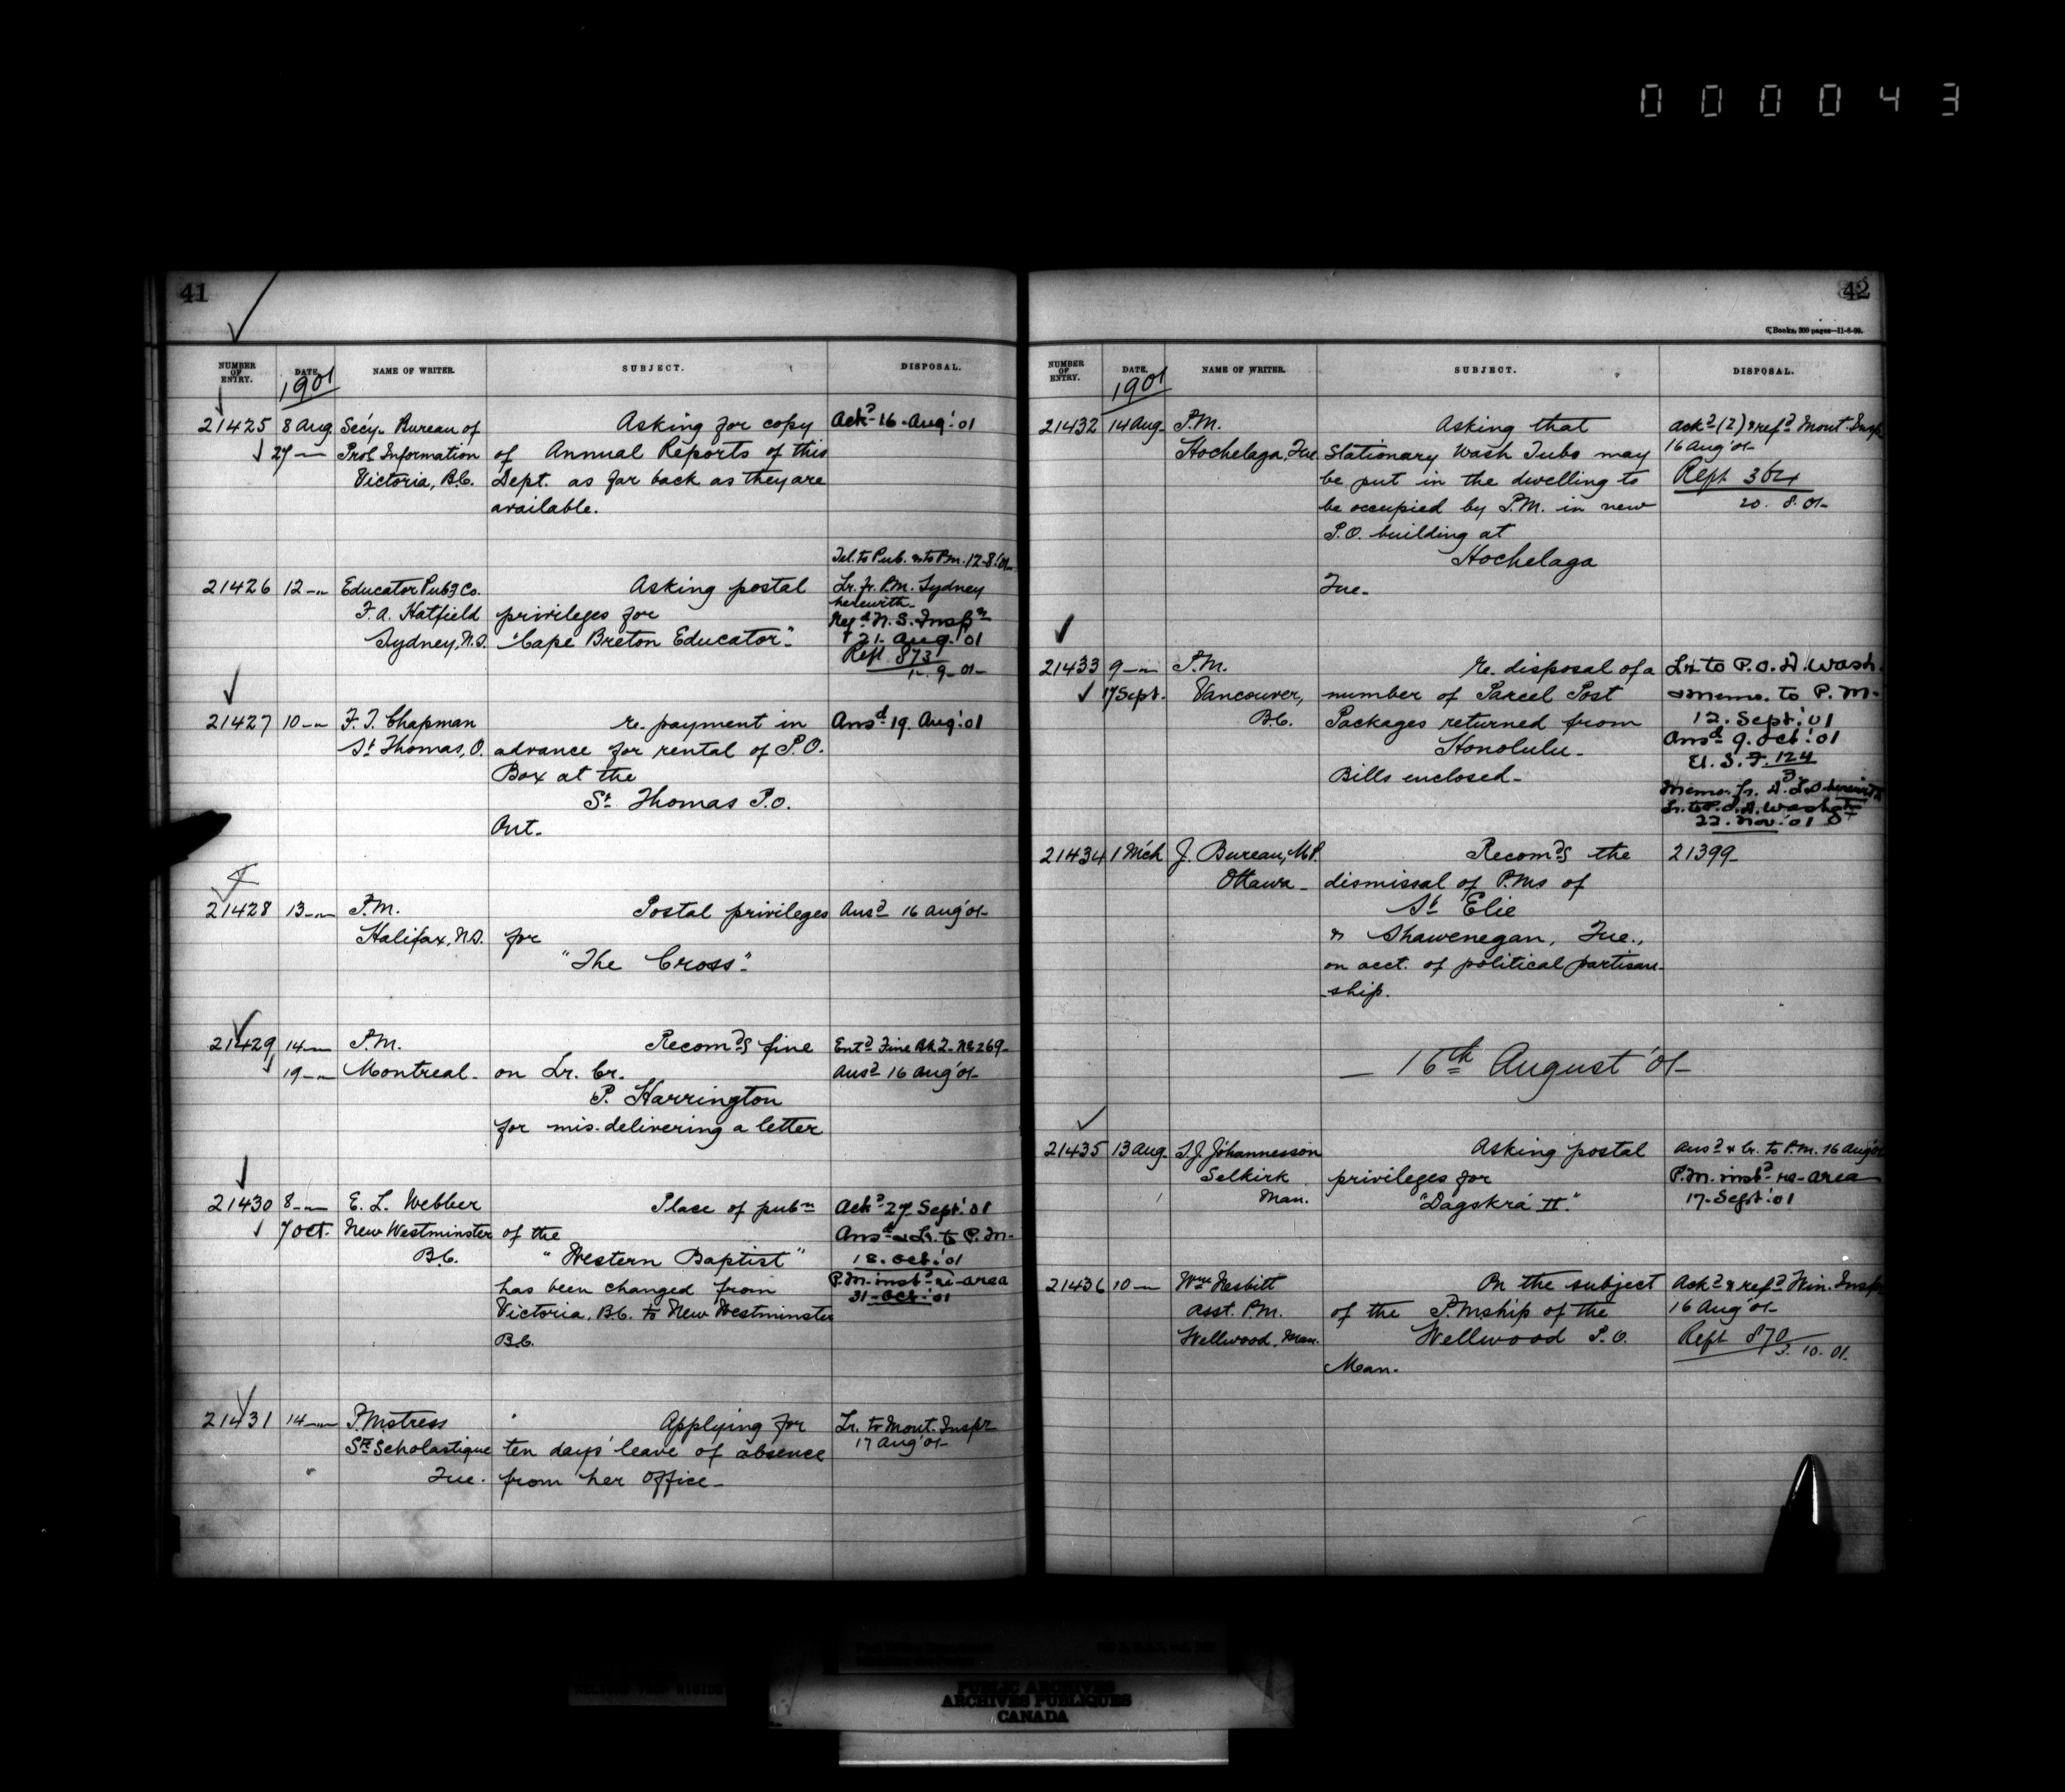 000043
41
NUMBER OF ENTRY. DATE. NAME OF WRITER. SUBJECT. DISPOSAL.
1901
21425 8 Aug. Sec'y. Bureau of Asking for copy Ackd 16 Aug '01
27 — Prol. Information of Annual Reports of this
Victoria, B.C. Dept. as far back as they are
available.
Tel. to Pub. & to P.M. 12-8-'01
21426 12 — Educator Pubg Co. Asking postal Lr. fr. P.M. Sydney
herewith
F. A. Hatfield privileges for Regd N.S. Inspr
Sydney, N.S. "Cape Breton Educator". 21. Aug. '01
Rept 873
12. 9. 01
21427 10 — F. T. Chapman re. payment in Ansd 19. Aug. '01
St Thomas, O. advance for rental of P.O.
Box at the
St Thomas P.O.
Ont.
21428 13 — P.M. Postal privileges Ansd 16 Aug '01
Halifax, N.S. for
"The Cross".
21429 14 — P.M. Recomds fine Entd Fine Bk 2. No 269
19 — Montreal. on Lr. Cr. Ansd 16 Aug '01
P. Harrington
for mis-delivering a letter
21430 8 — E. L. Webber Place of pubn Ackd 27 Sept. '01
7 Oct. New Westminster of the Ansd & Lr. to P.M.
B.C. "Western Baptist" 18. Oct. '01
has been changed from P.M. instd re area
31 Oct. '01
Victoria, B.C. to New Westminster
B.C.
21431 14 — P.Mstress Applying for Lr. to Mont. Inspr
Ste Scholastique ten days' leave of absence 17 Aug '01
Que. from her office
42
6 Books, 300 pages—11-8-99.
NUMBER OF ENTRY. DATE. NAME OF WRITER. SUBJECT. DISPOSAL.
1901
21432 14 Aug. P.M. Asking that Ackd (2) & refd Mont. Inspr
Hochelaga, Que. Stationary Wash Tubs may 16 Aug '01
be put in the dwelling to Rept 364
be occupied by P.M. in new 20. 8. 01
P.O. building at
Hochelaga
Que.
21433 9 — P.M. re. disposal of a Lr. to P.O.D. Wash.
17 Sept. Vancouver, number of Parcel Post & memo. to P.M.
B.C. Packages returned from 12. Sept. '01
Honolulu. Ansd 9. Oct. '01
Bills enclosed. El. S. F. 124
3
Memo. fr. D.L.O. herewith
Lr. to P.O.D. Washgtn
22. Nov. '01
21434 1 Mch J. Bureau, M.P. Recomds the 21399
Ottawa dismissal of P.Ms of
St Elie
& Shawenegan, Que.,
on acct. of political partisan-
ship.
16th August '01
21435 13 Aug. S. J. Jóhannesson Asking postal Ansd & Lr. to P.M. 16 Aug '01
Selkirk privileges for P.M. instd re area
Man. "Dagskrá II". 17 Sept. '01
21436 10 — Wm Nesbitt On the subject Ackd & refd Win. Inspr
asst. P.M. of the P.Mship of the 16 Aug '01
Wellwood, Man. Wellwood P.O. Rept 870
Man. 3. 10. 01
PUBLIC ARCHIVES
ARCHIVES PUBLIQUES
CANADA